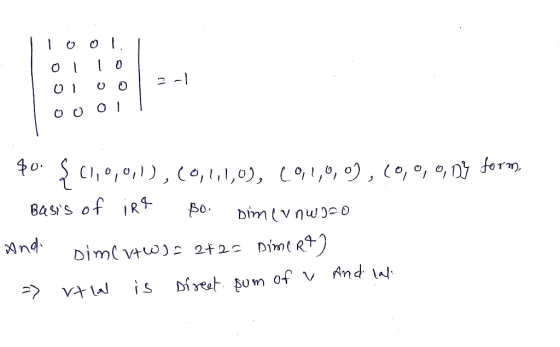 | 1 0 0 1. |
| 0 1 1 0 |
| 0 1 0 0 | = -1
| 0 0 0 1 |
So. { (1,0,0,1), (0,1,1,0), (0,1,0,0), (0,0,0,1)} form.
Basis of IR4 So. Dim(V∩W)=0
And. Dim(V+W)= 2+2= Dim(R4)
=> V+W is Direct sum of V And W.